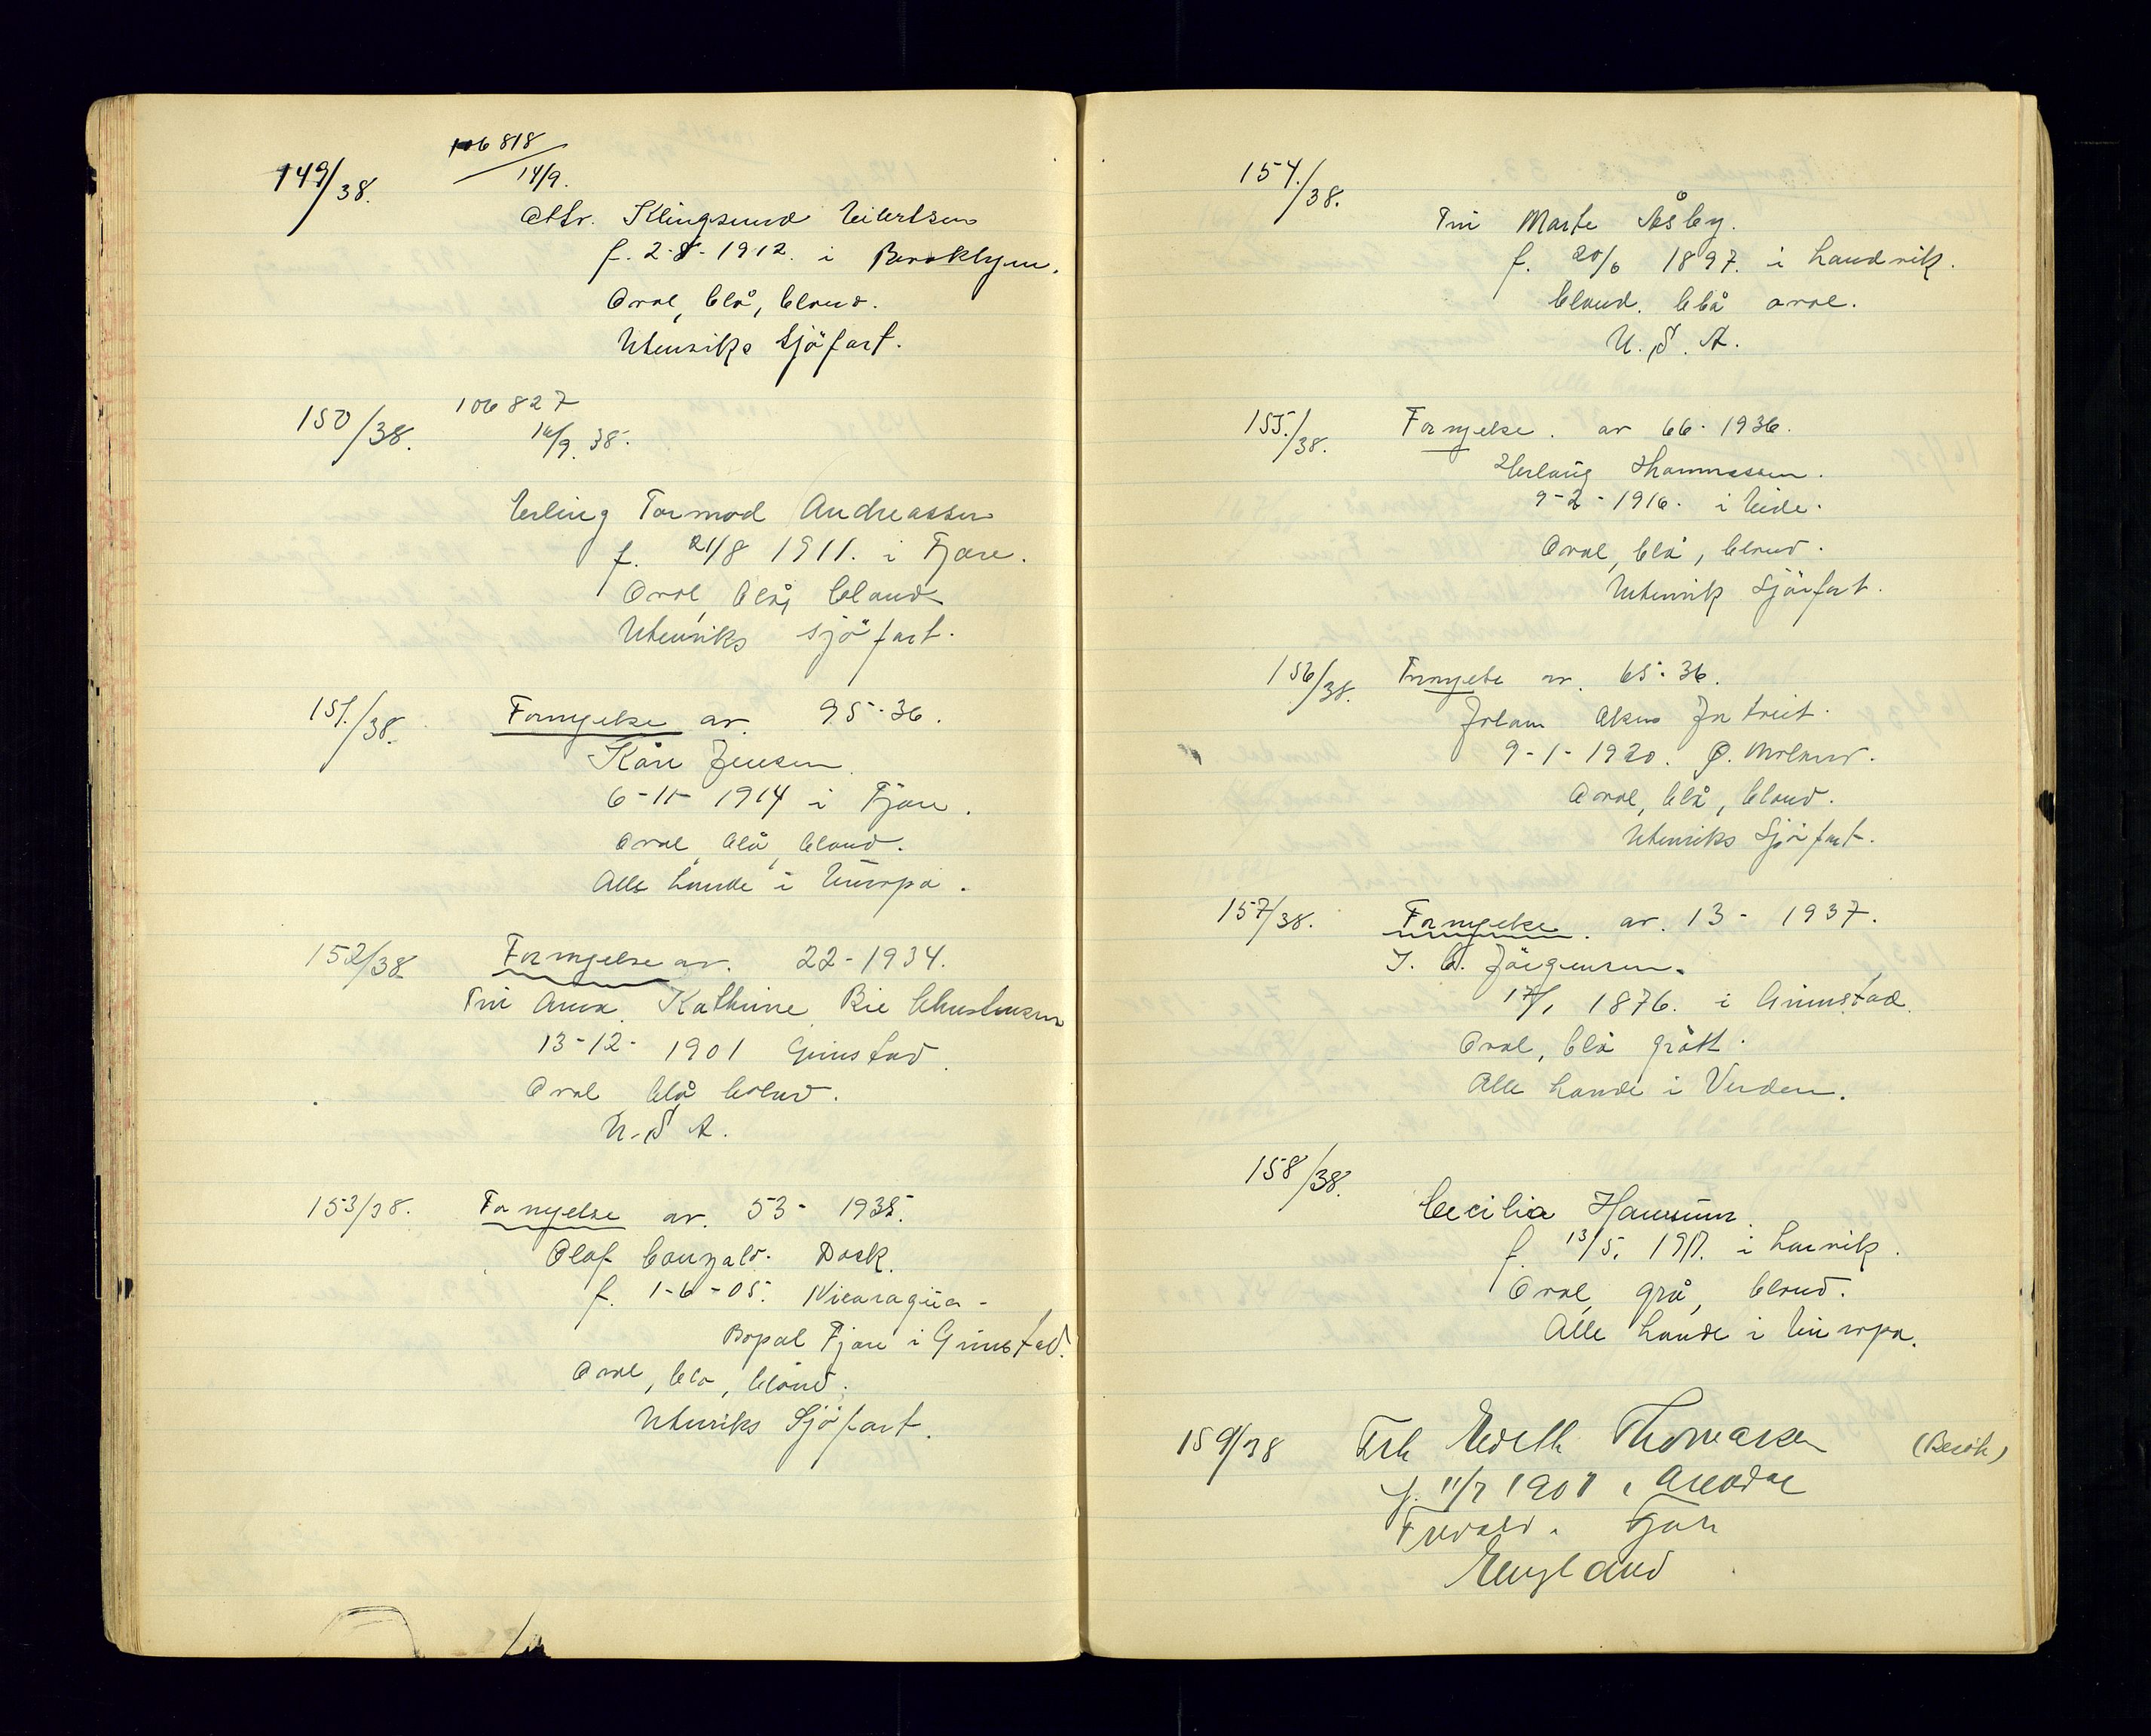 149/38.
106818
14/9.
Klingsund Eilertsen
f. 2-8-1912. i Brooklyn.
Oval, blå, blond.
Utenriks Sjöfart.
150/38.
106827
14/9. 38.
Erling Tormod Andreassen
f. 21/8 1911. i Fjære.
Oval, blå, blond
Utenriks sjöfart.
151./38.
Fornyelse av. 95-36.
Kåre Jensen
6-11-1914 i Fjære.
Oval, blå, blond.
Alle lande i Europa.
152/38
Fornyelse av. 22-1934.
Anna Kathrine Bie Christensen
13-12-1901 Grimstad.
Oval blå blond.
U.S.A.
153/38.
Fornyelse av. 53- 1935.
Olaf Gonzald. Dock.
f. 1-6-05. Nicaragua-
Bopæl Fjære i Grimstad.
Oval, blå, blond.
Utenriks Sjöfart.
154./38.
Marte Åsby.
f. 20/6 1897. i Landvik.
blond. blå oval.
U.S.A.
155./38.
Fornyelse. av 66-1936.
Thommassen.
9-2-1916. i Eide.
Oval, blå, blond.
Utenrik Sjöfart.
156/38.
Fornyelse av. 65-36.
9-1-1920.
Oval, blå, blond.
Utenriks Sjöfart.
157/38.
Fornyelse. av. 13- 1937.
Jörgensen.
17/1 1876. i Grimstad.
Oval, blå grått.
Alle lande i Verden.
158/38.
Cecilia
f. 13/5. 1917. i Larvik.
Oval, grå, blond.
Alle lande i Europa.
159/38
Edith Thomassen (Besök)
f. 11/7 1907 i Arendal
Fjære
England